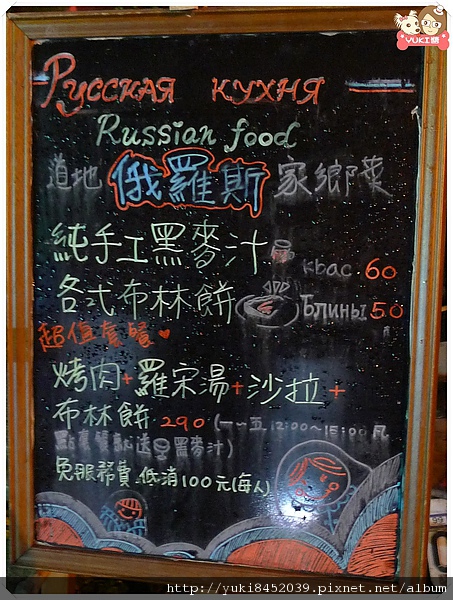 YUKI醬
Русская кухня
Russian food
道地 俄羅斯 家鄉菜
純手工黑麥汁 квас 60
各式布林餅 Блины 50
超值套餐
烤肉+羅宋湯+沙拉+
布林餅 290 (一~五 12:00~15:00 凡
點套餐就送 黑麥汁)
免服務費.低消100元(每人)
http://yuki8452039.pixnet.net/album